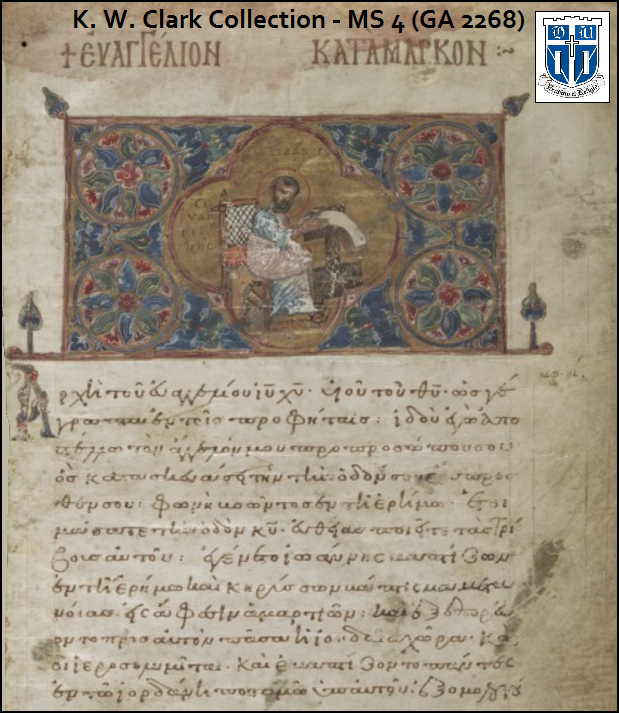 K. W. Clark Collection - MS 4 (GA 2268)
+ ΕΥΑΓΓΕΛΙΟΝ ΚΑΤΑ ΜΑΡΚΟΝ :~
Ἀρχὴ τοῦ εὐαγγελίου ἰῦ χῦ· υἱοῦ τοῦ θῦ· ὡς γέ
γραπται ἐν τοῖς προφήταις: ἰδοὺ ἐγὼ ἀπο
στέλλω τὸν ἄγγελόν μου πρὸ προσώπου σου·
ὃς κατασκευάσει τὴν ὁδόν σου ἔμπροσ
θέν σου: φωνὴ βοῶντος ἐν τῆ ἐρήμω· ἑτοι
μάσατε τὴν ὁδὸν κῦ· εὐθείας ποιεῖτε τὰς τρί
βους αὐτοῦ: ἐγένετο ἰωάννης βαπτίζων
ἐν τῆ ἐρήμω καὶ κηρύσσων βάπτισμα μετα
νοίας εἰς ἄφεσιν ἁμαρτιῶν: καὶ ἐξεπορεύ
οντο πρὸς αὐτὸν πᾶσα ἡ ἰουδαία χώρα· καὶ
οἱ ἱεροσολυμῖται· καὶ ἐβαπτίζοντο πάντες
ἐν τῶ ἰορδάνη ποταμῶ ὑπ' αὐτοῦ· ἐξομολογού